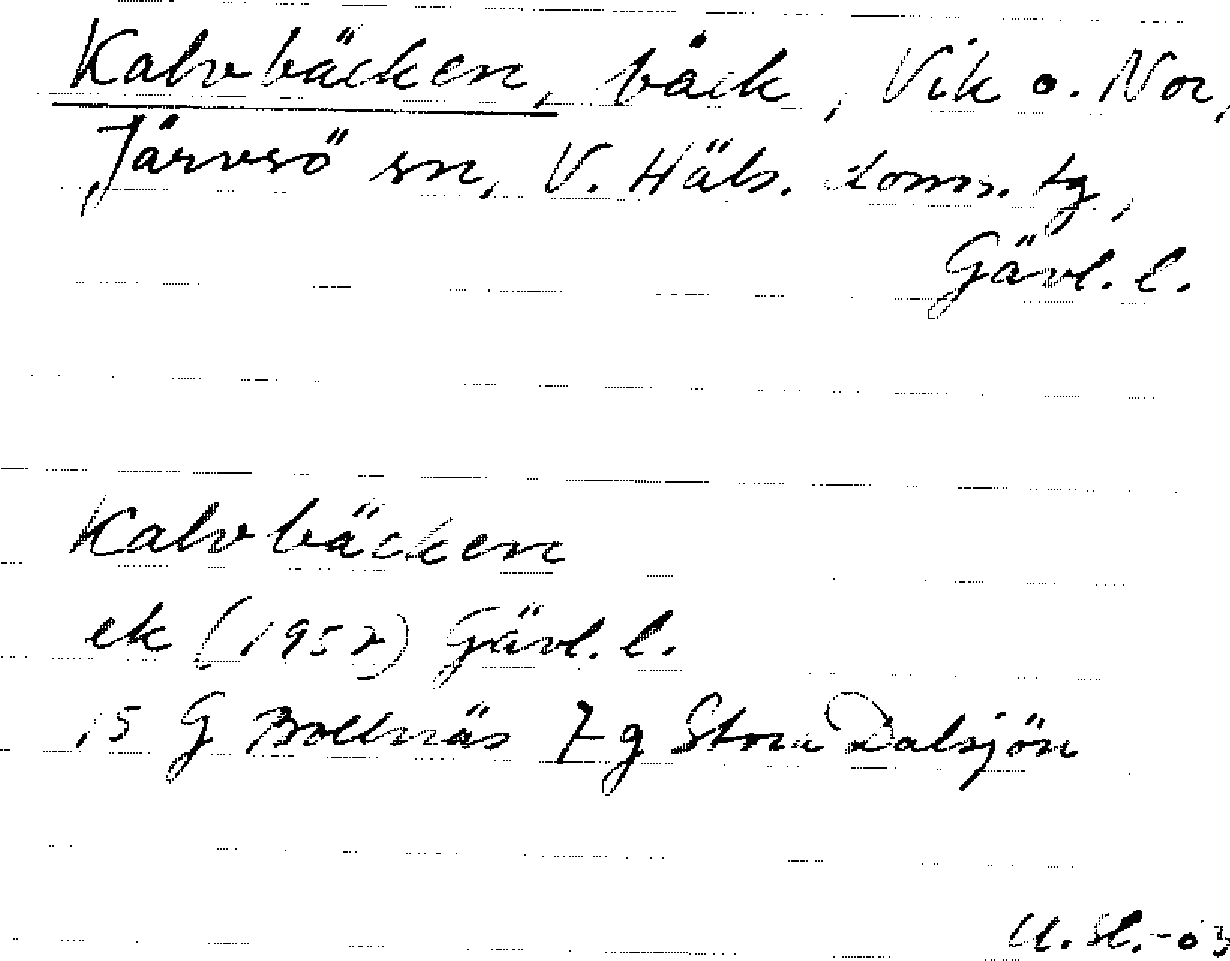 Kalvbäcken, bäck, Vik o. Nor,
Järvsö sn, V. Häls. doms. tg,
Gävl. l.
Kalvbäcken
ek (1957) Gävl. l.
15 G Bollnäs 7 g Stora Dalsjön
U. St. -03